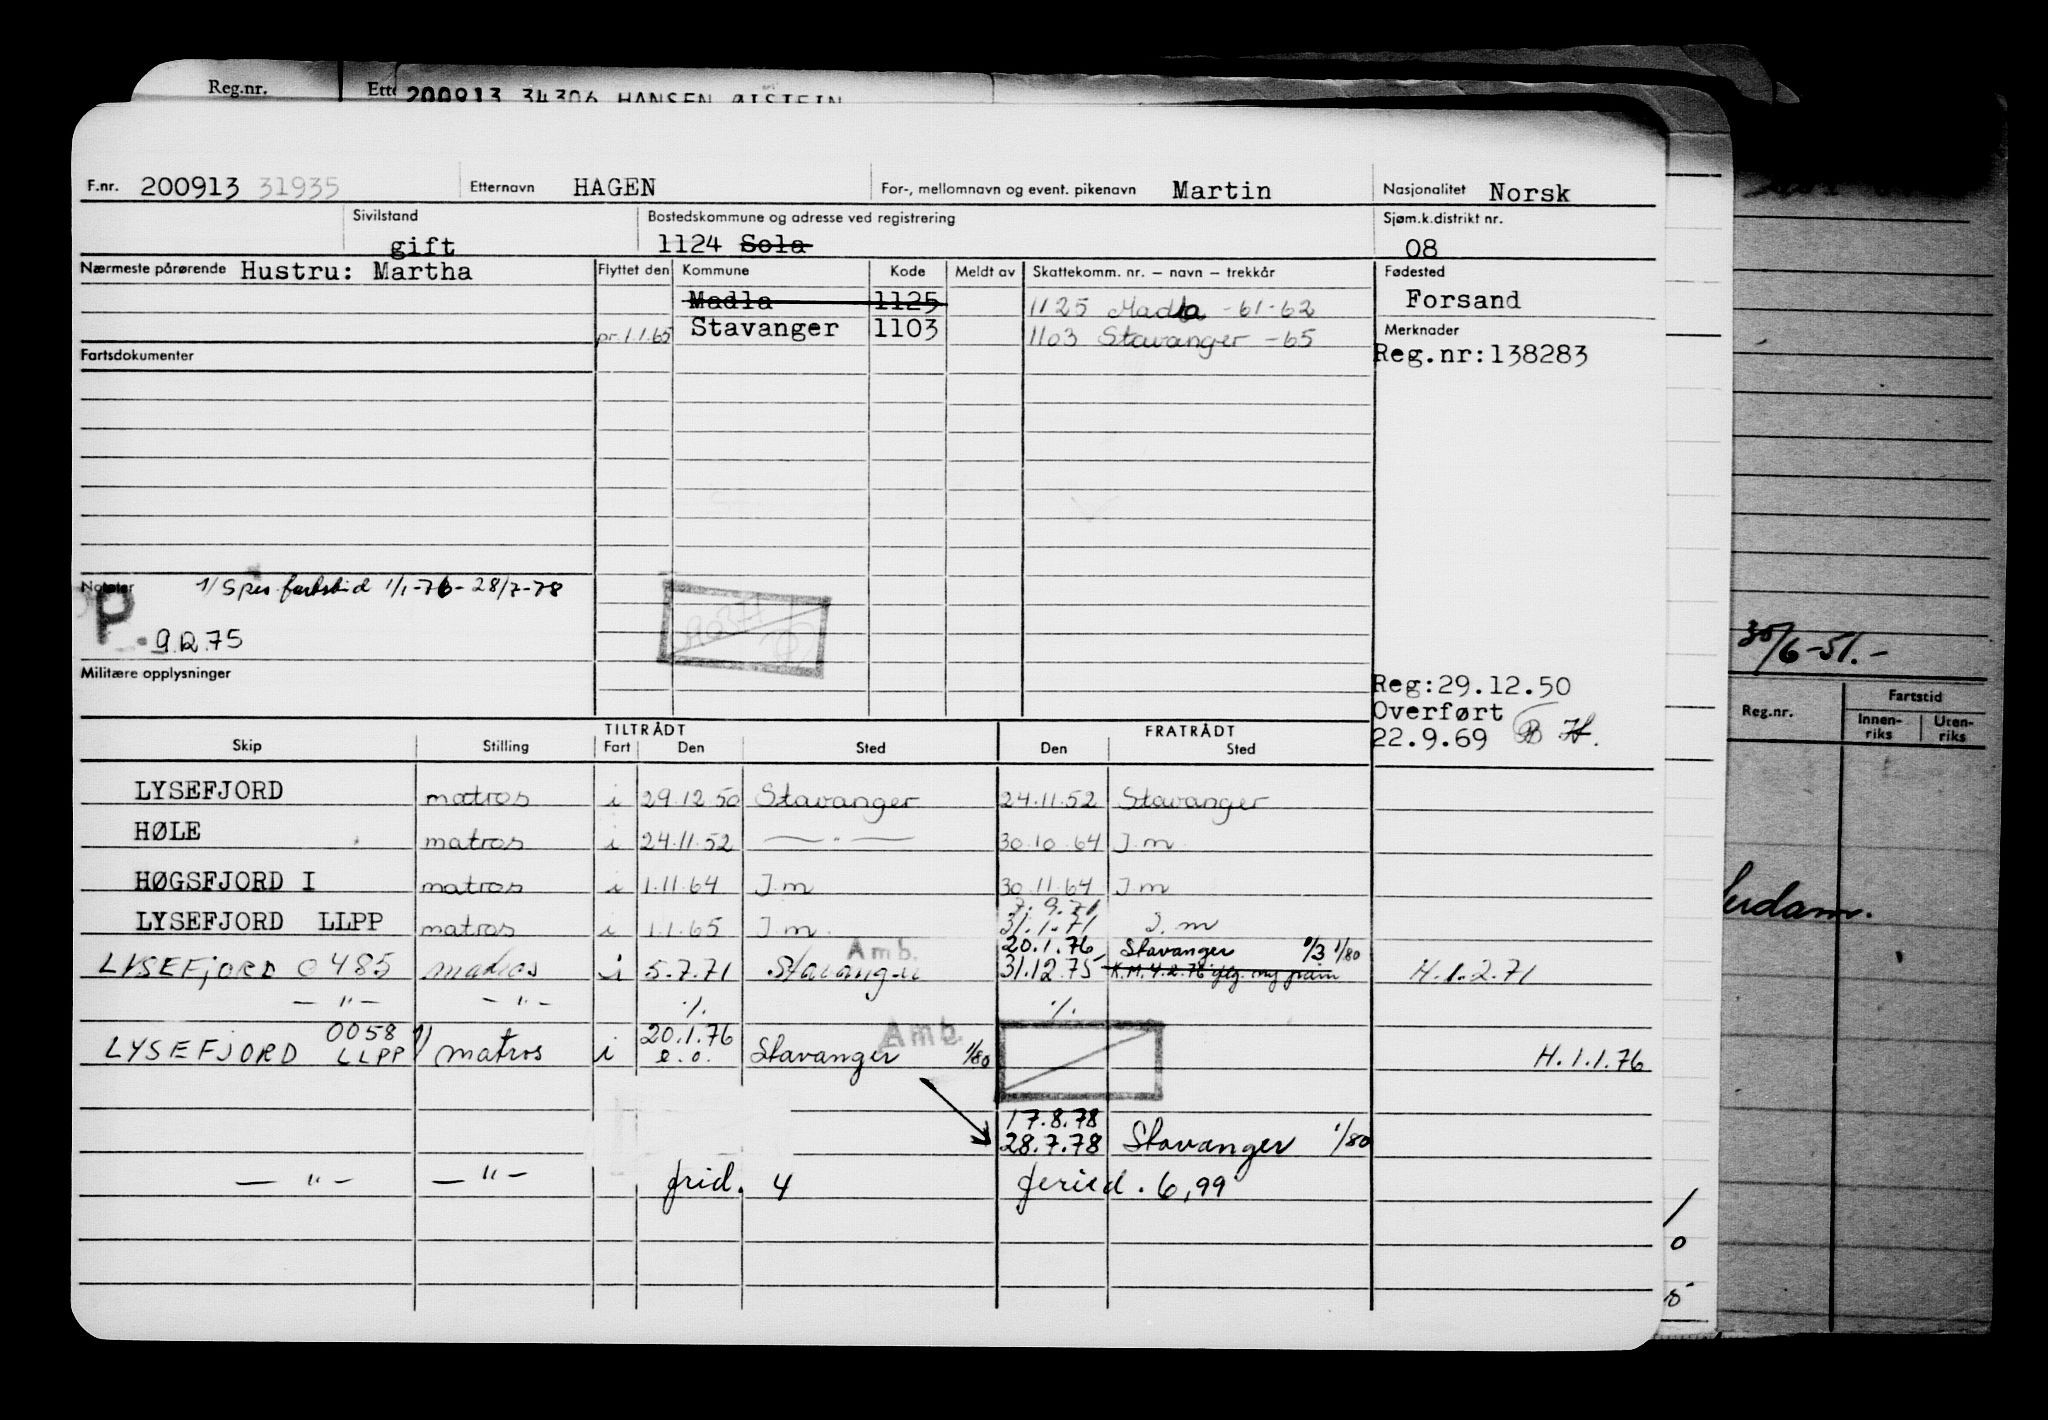 Reg.nr. Ette 200913 34306 HANSEN ØISTEIN
F.nr. 200913 31935 Etternavn HAGEN For-, mellomnavn og event. pikenavn Martin Nasjonalitet Norsk
Sivilstand gift Bostedskommune og adresse ved registrering 1124 Sola Sjøm.k.distrikt nr. 08
Nærmeste pårørende Hustru: Martha Flyttet den Kommune Kode Meldt av Skattekomm. nr. – navn – trekkår Fødested
Madla 1125 1125 Madla -61-62 Forsand
pr. 1.1.65 Stavanger 1103 1103 Stavanger -65 Merknader
Fartsdokumenter Reg.nr:138283
Notater 1/ Spes fartstid 1/1-76 - 28/7-78
P
9.12.75
Militære opplysninger
Reg:29.12.50
Overført
22.9.69 H.
TILTRÅDT FRATRÅDT
Skip Stilling Fart Den Sted Den Sted
LYSEFJORD matros i 29.12.50 Stavanger 24.11.52 Stavanger
HØLE matros i 24.11.52 — " — 30.10.64 J.m
HØGSFJORD I matros i 1.11.64 J.m 30.11.64 J.m
7.9.71
LYSEFJORD LLPP matros i 1.1.65 J.m. 31.1.71 J.m
Amb. 20.1.76 Stavanger 1/80
LYSEFJORD 0485 matros i 5.7.71 Stavanger 31.12.75 K.M. 4.2.76 H.1.2.71
— " — — " — ./. ./.
0058 1/ 20.1.76 Amb.
LYSEFJORD LLPP matros i e.o. Stavanger 1/80 H.1.1.76
17.8.78
28.7.78 Stavanger 1/80
— " — — " — frid. 4 feried. 6,99
30/6-51.-
Reg.nr. Fartstid
Innen-riks Uten-riks